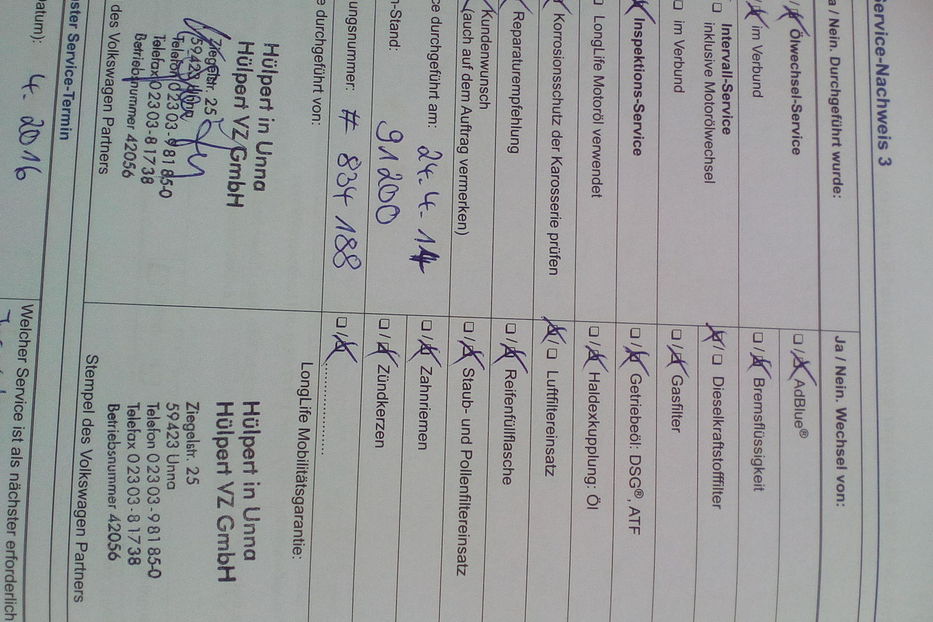 Service-Nachweis 3
a / Nein. Durchgeführt wurde:
Ölwechsel-Service
im Verbund
Intervall-Service
inklusive Motorölwechsel
im Verbund
Inspektions-Service
LongLife Motoröl verwendet
Korrosionsschutz der Karosserie prüfen
Reparaturempfehlung
Kundenwunsch
(auch auf dem Auftrag vermerken)
ce durchgeführt am: 24.4.14
n-Stand: 91200
ungsnummer: # 834 188
e durchgeführt von:
Hülpert in Unna
Hülpert VZ GmbH
Ziegelstr. 25
59423 Unna
Telefon 0 23 03-9 81 85-0
Telefax 0 23 03-8 17 38
Betriebsnummer 42056
des Volkswagen Partners
Ja / Nein. Wechsel von:
AdBlue®
Bremsflüssigkeit
Dieselkraftstofffilter
Gasfilter
Getriebeöl: DSG®, ATF
Haldexkupplung: Öl
Luftfiltereinsatz
Reifenfüllflasche
Staub- und Pollenfiltereinsatz
Zahnriemen
Zündkerzen
LongLife Mobilitätsgarantie:
Hülpert in Unna
Hülpert VZ GmbH
Ziegelstr. 25
59423 Unna
Telefon 0 23 03-9 81 85-0
Telefax 0 23 03-8 17 38
Betriebsnummer 42056
Stempel des Volkswagen Partners
ster Service-Termin
Datum): 4. 2016
Welcher Service ist als nächster erforderlich